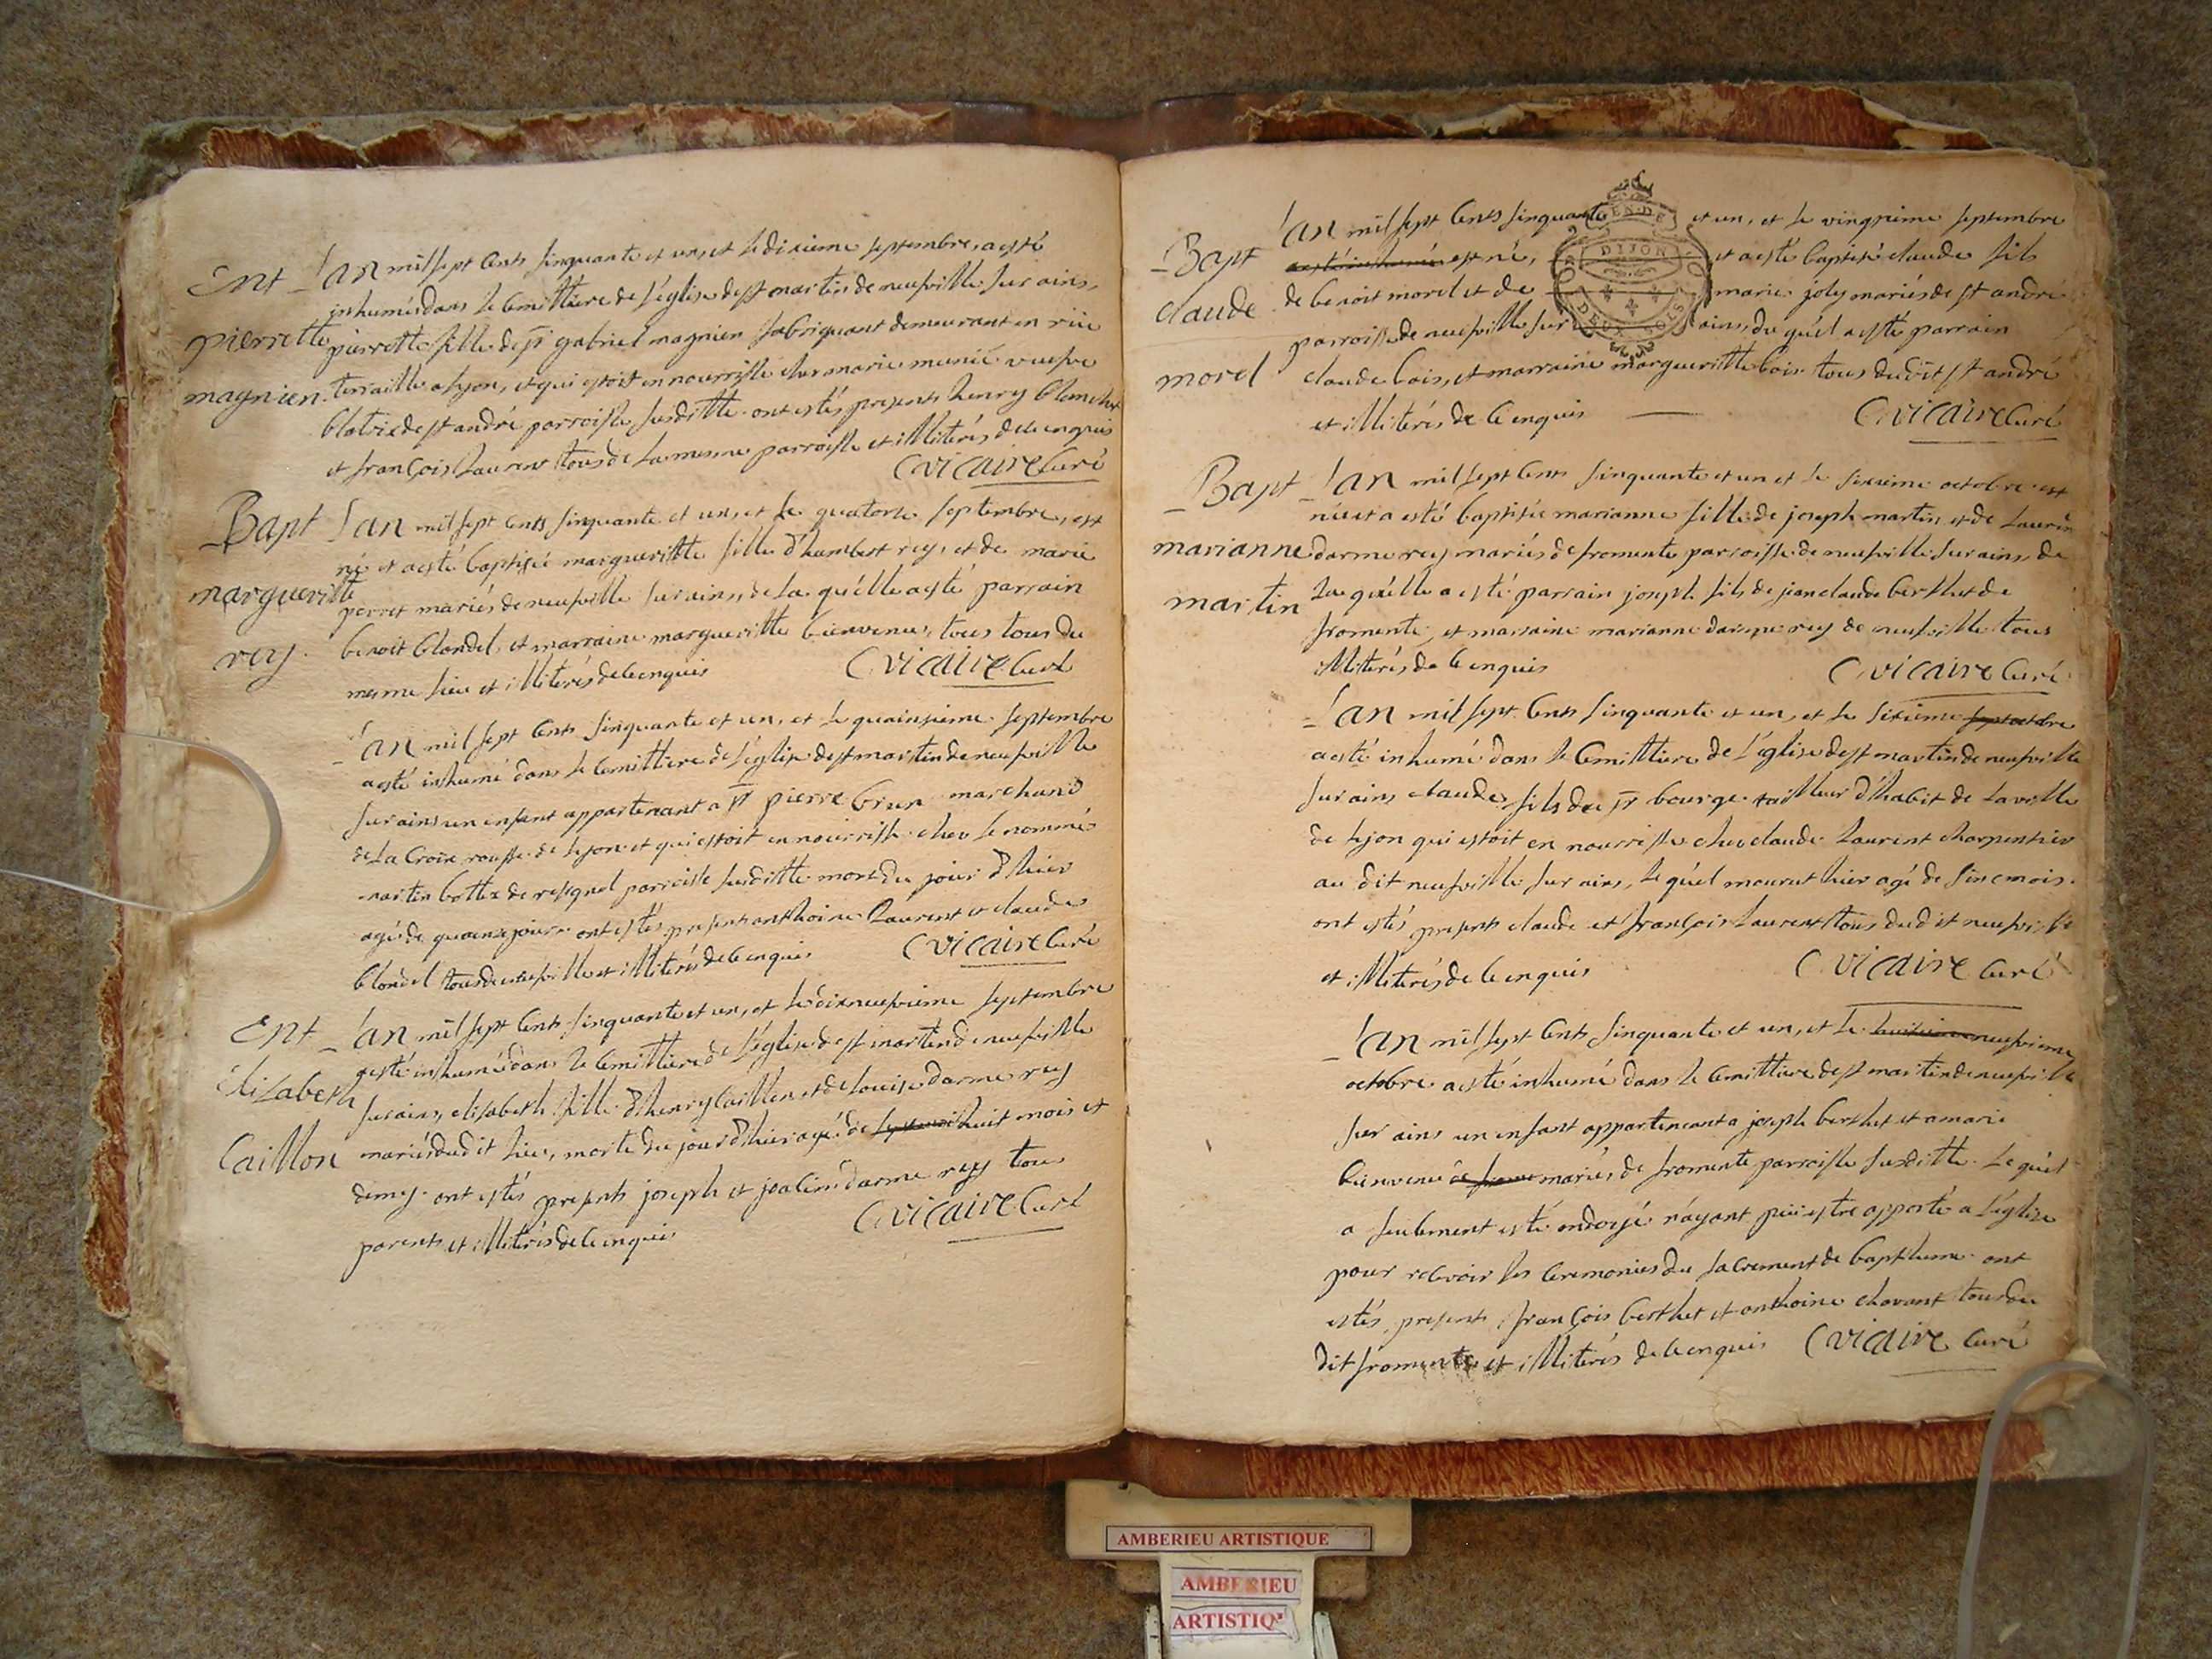 Ent
pierrette
magnien
L'an mil sept cents sinquante et un, et le dixieme septembre, a esté
inhumée dans le cemittiere de l'église de st martin de neufville sur ains,
pierrette fille de sr gabriel magnien fabriquant demeurant en rüe
terraille a lyon, et qui estoit en nourrisse chez marie munié veufve
de st andré parroisse susditte. ont estés presents henry
et françois laurent tous de la mesme parroisse et illiterés de ce enquis
C vicaire Curé
Bapt
margueritte
rey.
L'an mil sept cents sinquante et un, et le quatorze septembre, est
né et a esté baptisée margueritte fille d'humbert rey, et de marie
perret mariés de neufville sur ains, de la qu'elle a esté parrain
benoit blondel, et marraine margueritte bienvenue, tous tous du
mesme lieu et illiterés de ce enquis
C vicaire Curé
L'an mil sept cents sinquante et un, et le quainzieme septembre
a esté inhumé dans le cemittiere de l'église de st martin de neufville
sur ains un enfant appartenant a sr pierre brun marchand
de la Croix rousse de lyon et qui estoit en nourrisse chez le nommé
martin bottex de resignel parroisse susditte mort du jour d'hier
agé de quainze jours ont estés presents anthoine laurent et claude
blondel tous de neufville et illiterés de ce enquis
C vicaire Curé
Ent
Élizabeth
Caillon
L'an mil sept cents sinquante et un, et le dixneufvieme septembre
a esté inhumée dans le cemittiere de l'église de st martin de neufville
sur ains, elisabeth fille d'henry caillon et de louise darmerey
mariés dudit lieu, morte du jour d'hier agé de huit mois et
demy. ont estés presents joseph et joachim darme rey tous
parents et illiterés de ce enquis
C vicaire Curé
Bapt
claude
morel
L'an mil sept cents sinquante et un, et le vingtieme septembre
a esté inhumé est né, et a esté baptisé claude fils
de benoit morel et de marie joly mariés de st andré
parroisse de neufville sur ains, du qu'el a esté parrain
claude bois, et marraine margueritte bois tous dudit st andré
et illiterés de ce enquis
C vicaire Curé
GEN. DE
DIJON
DEUX SOLS
Bapt
marianne
martin
L'an mil sept cents sinquante et un et le sixieme octobre est
née et a esté baptisée marianne fille de joseph martin, et de laurence
darme rey mariés de fromente parroisse de neufville sur ains, de
la qu'elle a esté parrain joseph fils de jean claude berthet de
fromente, et marraine marianne darme rey de neufville tous
illiterés de ce enquis
C vicaire Curé
L'an mil sept cents sinquante et un, et le sixieme octobre
a esté inhumé dans le cemittiere de l'église de st martin de neufville
sur ains claude, fils du sr bourge tailleur d'habit de la ville
de lyon qui estoit en nourrisse chez claude laurent charpentier
au dit neufville sur ains, le qu'el mourut hier agé de sinc mois.
ont estés presents claude et françois laurent tous dudit neufville
et illiterés de ce enquis
C vicaire Curé
L'an mil sept cents sinquante et un, et le huitieme neufvieme
octobre a esté inhumé dans le cemittiere de st martin de neufville
sur ains un enfant appartenant a joseph berthet et a marie
bienvenue mariés de fromente parroisse susditte. le qu'el
a seulement esté ondoyé n'ayant pu estre apporté a l'église
pour recevoir les ceremonies du sacrement de baptheme. ont
estés presents françois berthet et anthoine chavant tous du
dit fromente et illiterés de ce enquis
C vicaire Curé
AMBERIEU ARTISTIQUE
AMBERIEU
ARTISTIQ